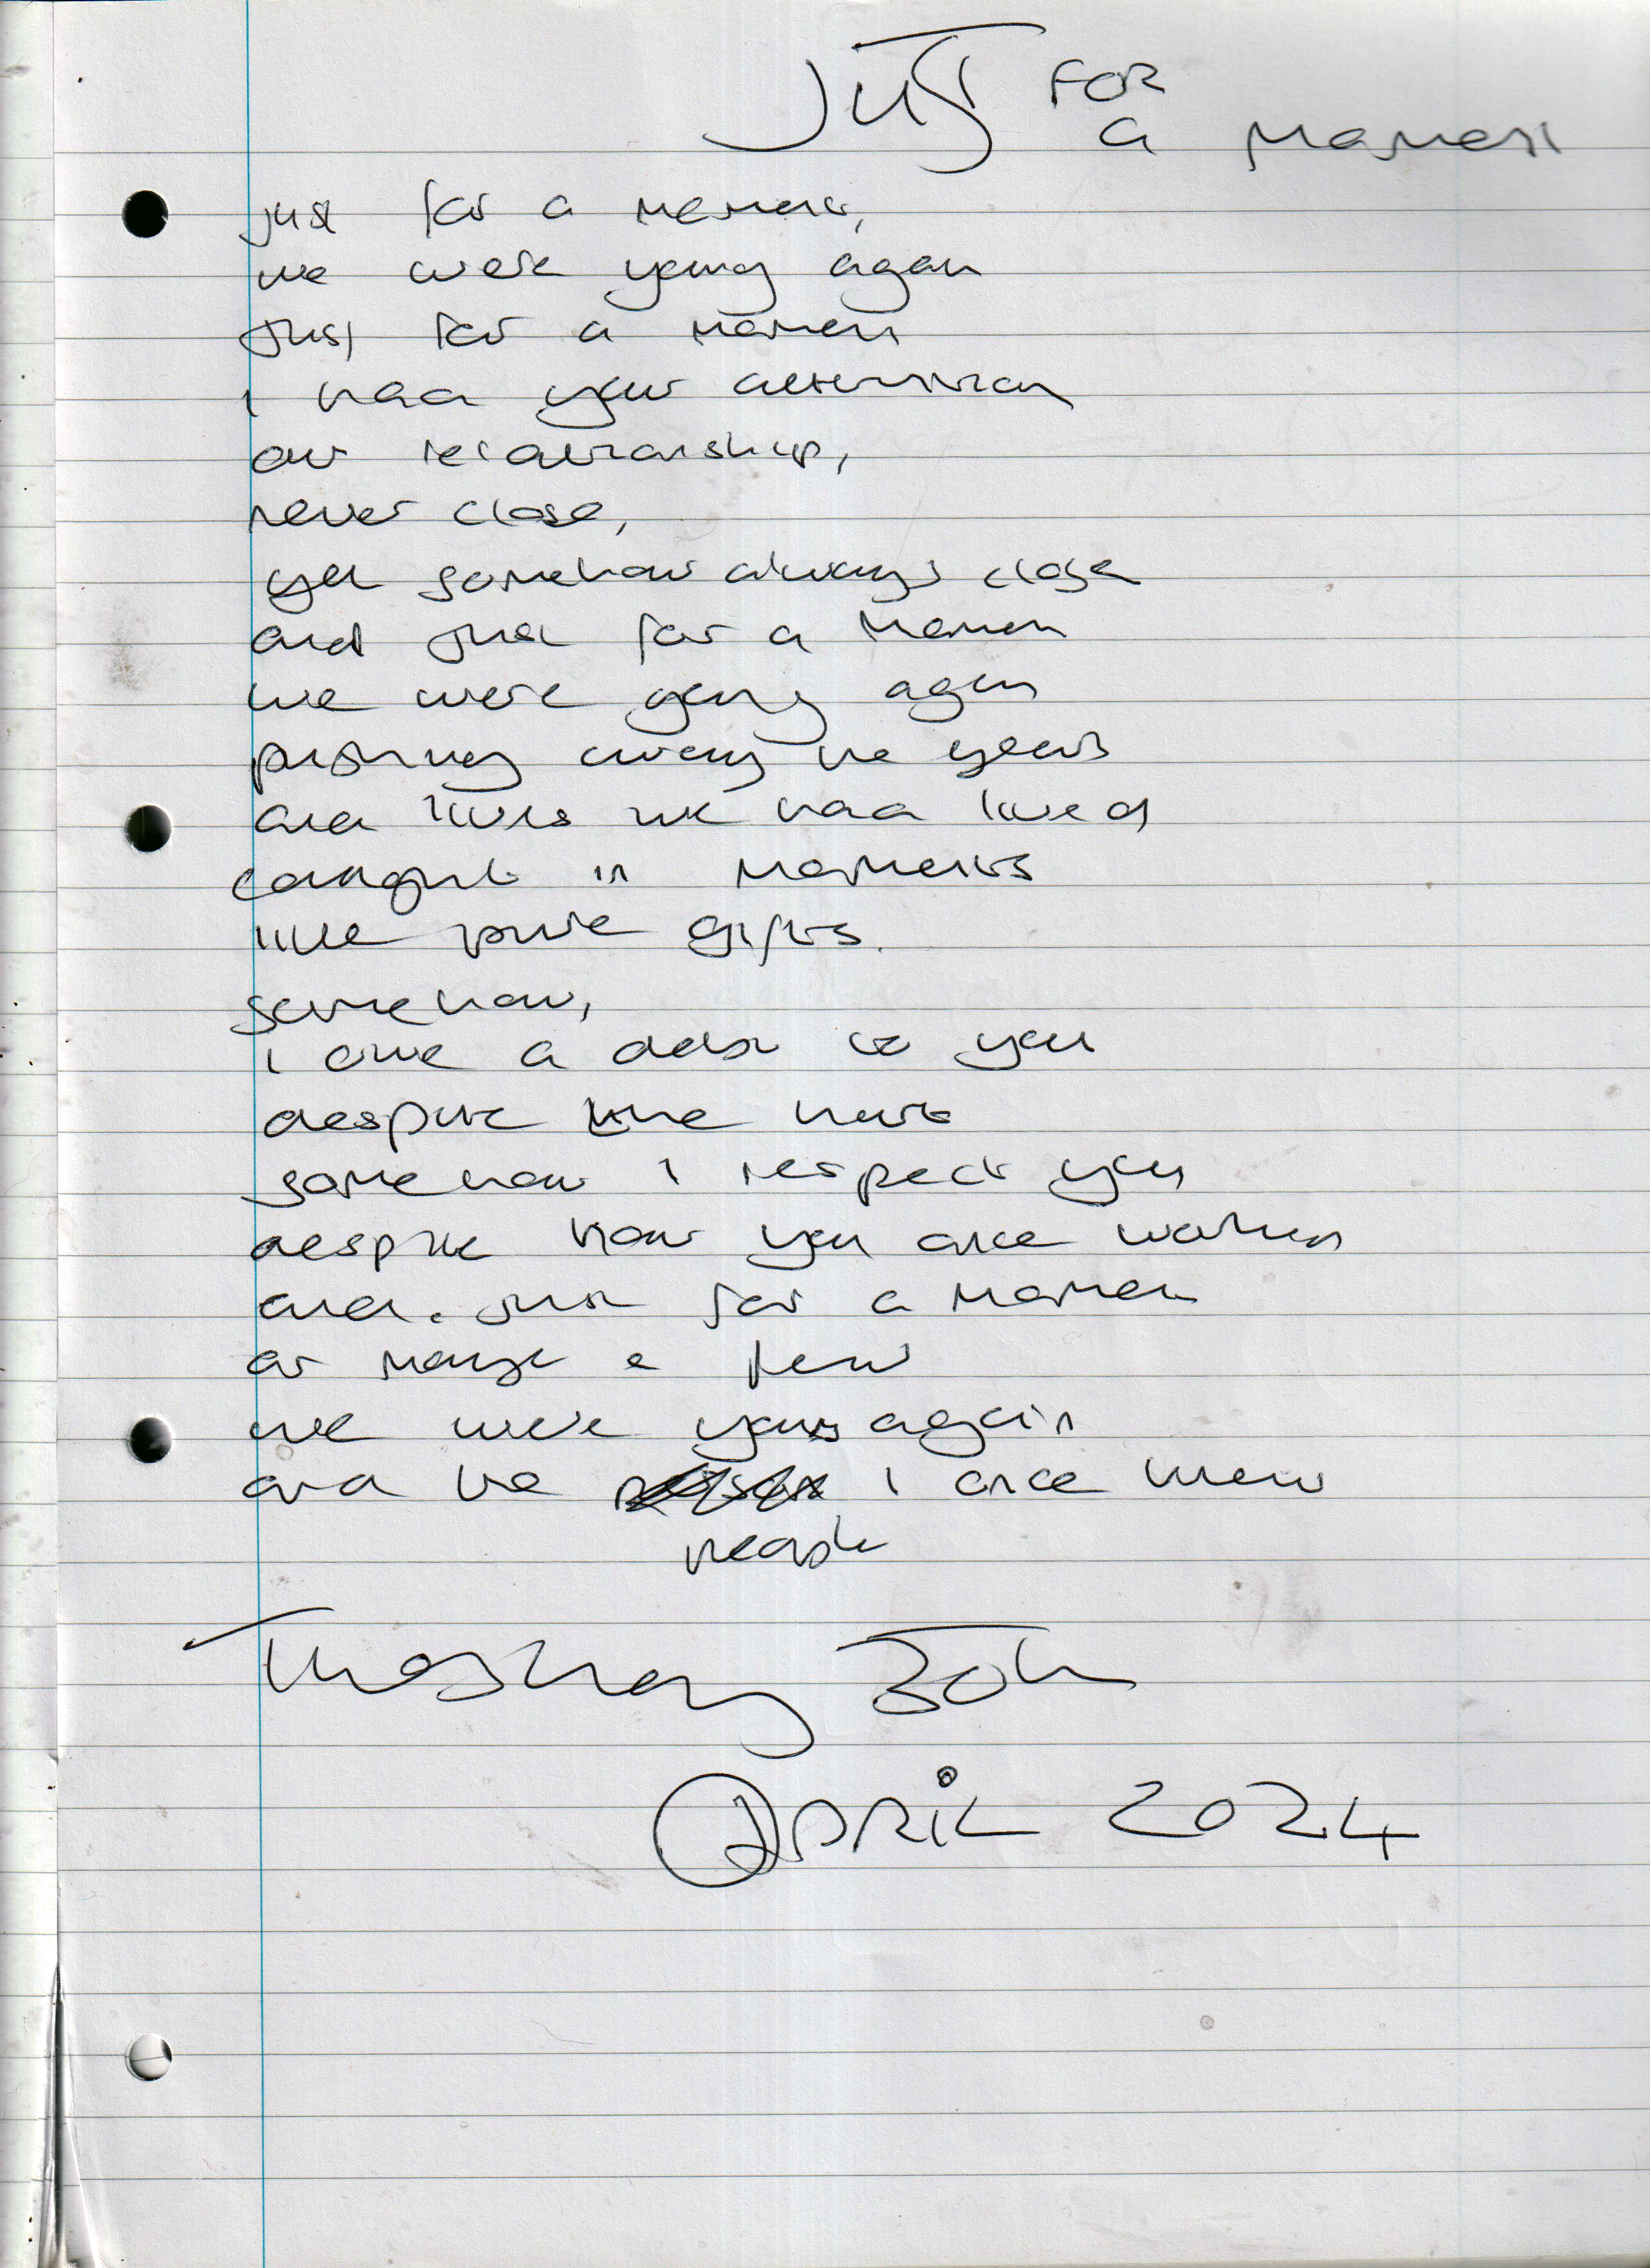 JUST FOR
a MOMENT
just for a moment,
we were young again
Just for a moment
i had your attention
our relationship,
never close,
yet somehow always close
and just for a moment
we were young again
pushing away the years
and lives we had lived
caught in moments
like pure gifts.
somehow,
i owe a debt to you
despite the hurt
somehow i respect you
despite how you once
and. just for a moment
or maybe a few
we were young again
and the i once knew
people
APRIL 2024